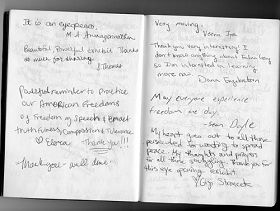 It is an eyeopener.
Beautiful Powerful exhibit. Thanks
so much for sharing.
Powerful reminder to Practice
our American Freedoms
of Freedom of Speech &
Truthfulness, Compassion & Tolerance
Elora Thank you!!!
Marvelous - well done.
Very moving.
Thank you, very interesting! I
don't know anything about Falun Gong
so I'm interested in learning
more now.
Dana
May everyone experience
freedom one day.
Sean Doyle
My heart goes out to all those
persecuted for wanting to spread
peace. My thoughts and prayers
to all those struggling. Thank you for
this eye opening exhibit.